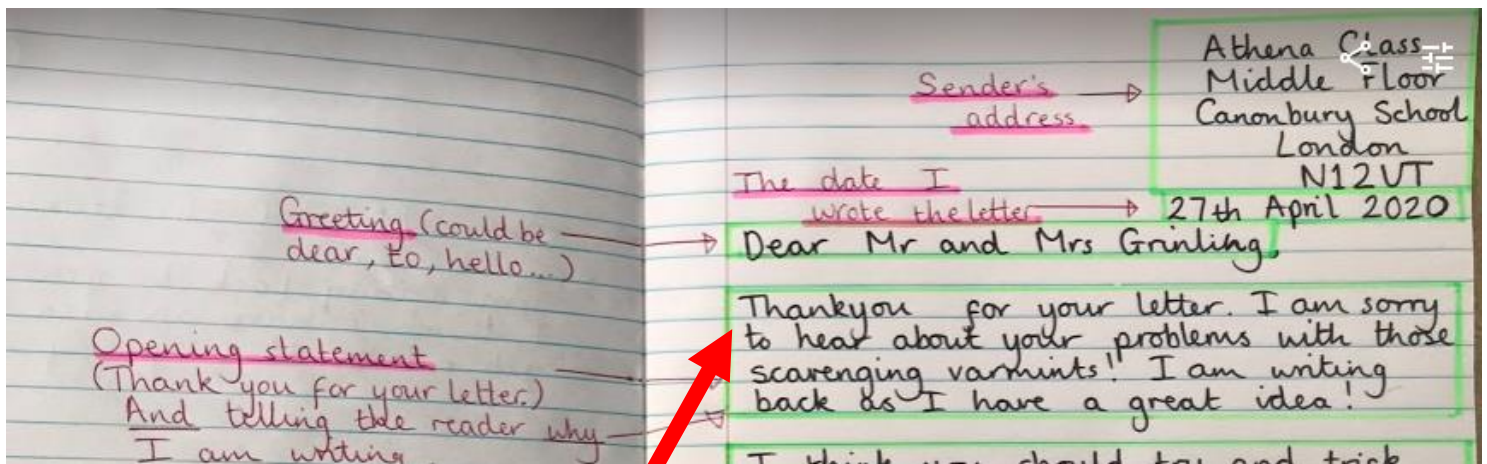 Athena Class
Middle Floor
Canonbury School
London
N12UT
Sender's
address
The date I
wrote the letter
27th April 2020
Greeting (could be
dear, to, hello...)
Dear Mr and Mrs Grinling,
Opening statement
(Thank you for your letter.)
And telling the reader why
I am writing
Thankyou for your letter. I am sorry
to hear about your problems with those
scavenging varmints! I am writing
back as I have a great idea!
I think you should try and trick